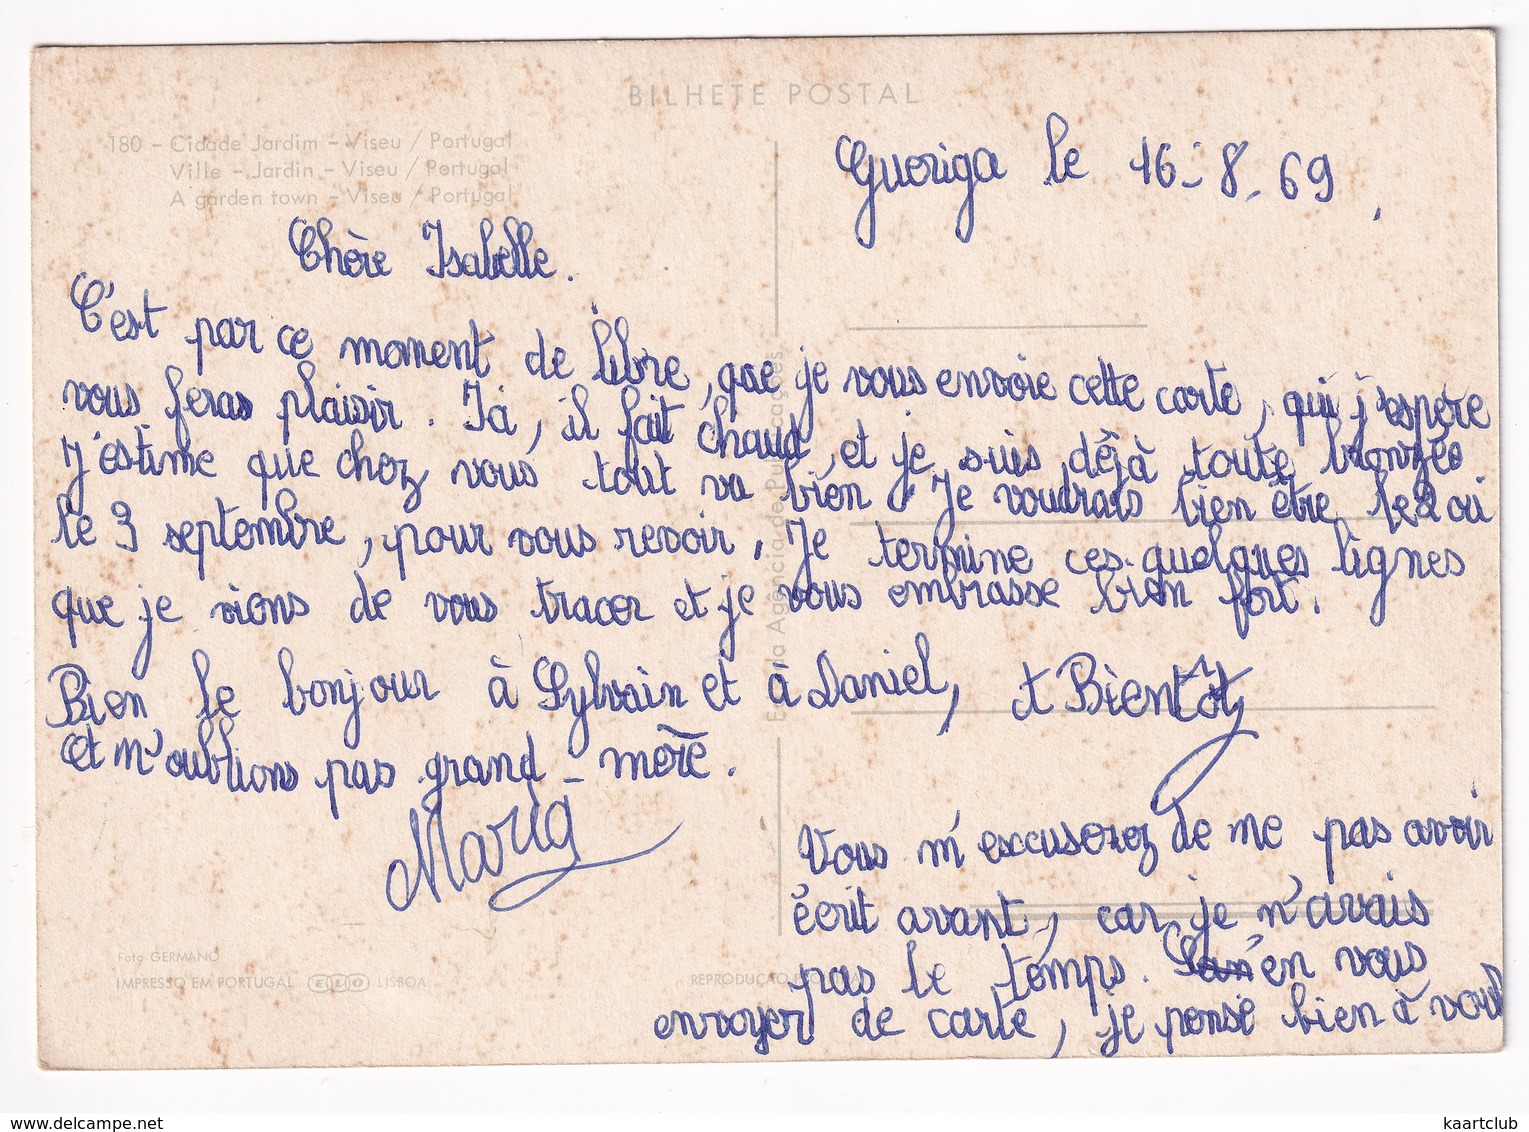 BILHETE POSTAL
180 - Cidade Jardim - Viseu / Portugal
Ville - Jardin - Viseu / Portugal
A garden town - Viseu / Portugal
Gueriga le 16-8-69.
Chère Isabelle.
C'est par ce moment de libre, que je vous envoie cette carte, qui j'espère
vous feras plaisir. Ici, il fait chaud, et je suis déjà toute bronzée
J'éstime que chez vous tout va bien. Je voudrais bien être le 2 ou
le 3 septembre, pour vous revoir. Je termine ces quelques lignes
que je viens de vous tracer et je vous embrasse bien fort.
Bien le bonjour à Sylvain et à Daniel, A Bientôt
Et n'oublions pas grand-mère.
Maria
Vous m'excuserez de ne pas avoir
écrit avant, car je n'avais
pas le temps. en vous
envoyer de carte, je pense bien à vous
Foto GERMANO
IMPRESSO EM PORTUGAL ELO LISBOA
REPRODUÇÃO
Ed. da Agência de Publicações
kaartclub